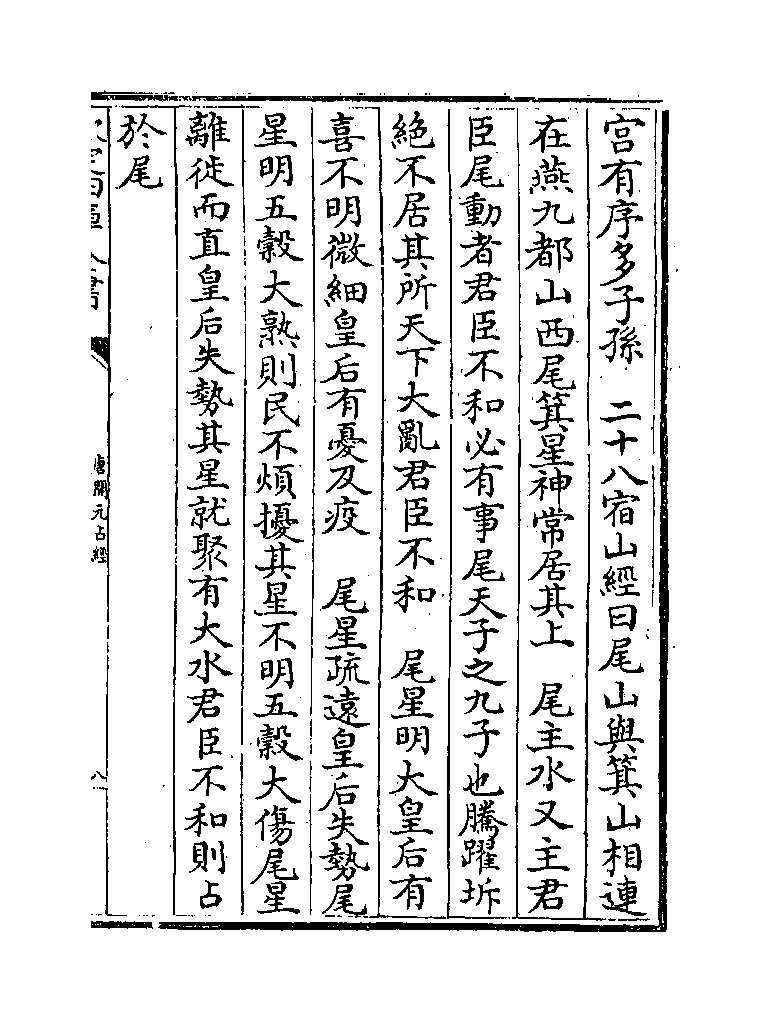 宫有序多子孫　二十八宿山經曰尾山與箕山相連
在燕九都山西尾箕星神常居其上　尾主水又主君
臣尾動者君臣不和必有事尾天子之九子也騰躍坼
絶不居其所天下大亂君臣不和　尾星明大皇后有
喜不明微細皇后有憂及疫　尾星疏遠皇后失勢尾
星明五穀大熟則民不煩擾其星不明五穀大傷尾星
離徙而直皇后失勢其星就聚有大水君臣不和則占
於尾
唐開元占經
八